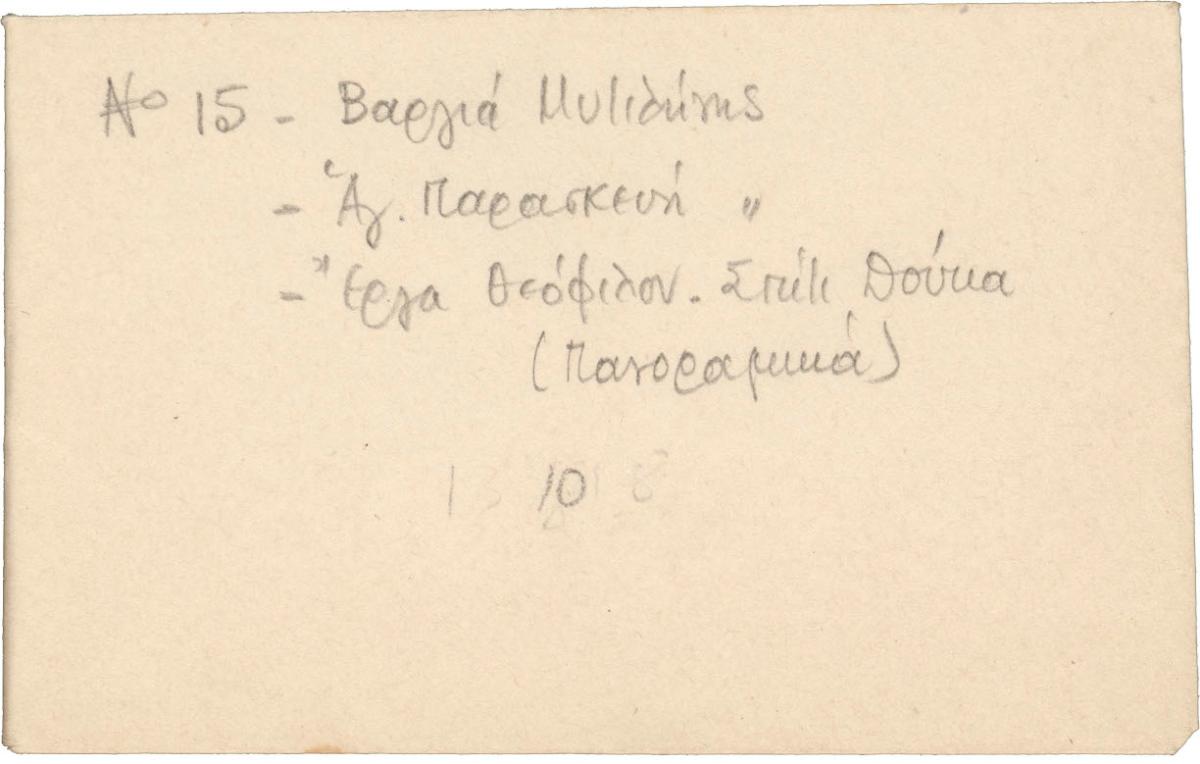 Νο 15 - Βαργιά Μυτιλήνης
- Ἁγ. Παρασκευή "
- Ἔργα Θεόφιλου. Σπίτι Δούκα
(Πανοραμικά)
10